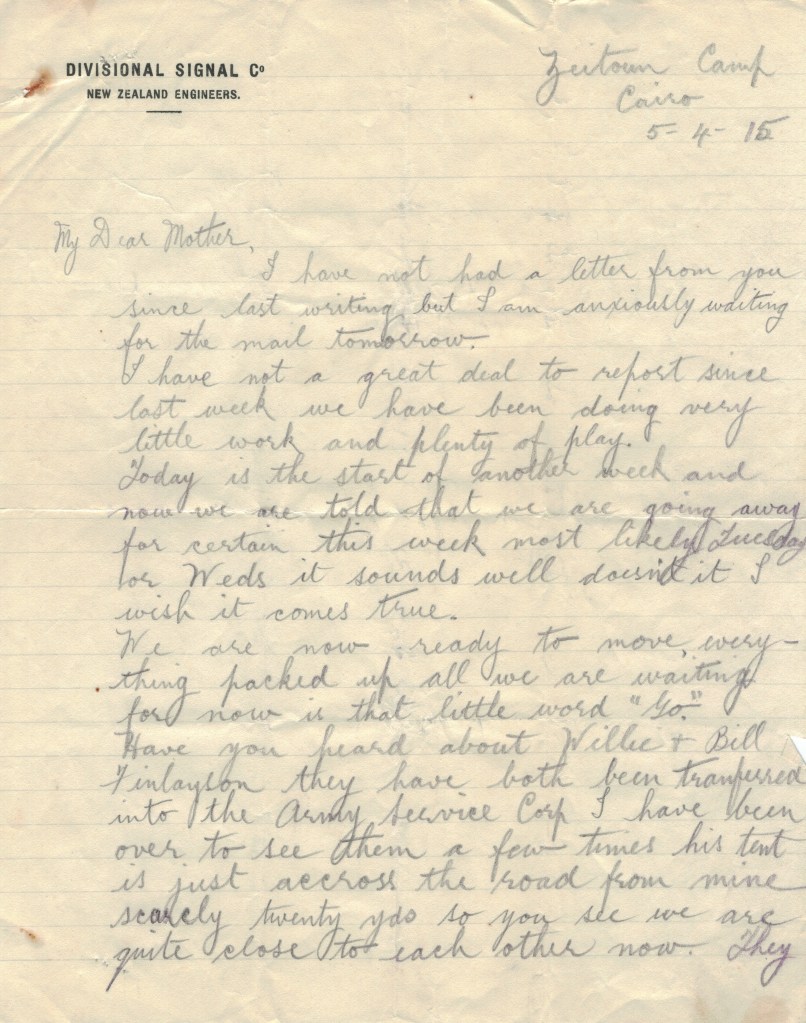 DIVISIONAL SIGNAL Cº
NEW ZEALAND ENGINEERS.
Zeitoun Camp
Cairo
5-4-15
My Dear Mother,
I have not had a letter from you
since last writing, but I am anxiously waiting
for the mail tomorrow.
I have not a great deal to report since
last week we have been doing very
little work and plenty of play.
Today is the start of another week and
now we are told that we are going away
for certain this week most likely Tuesday
or Weds it sounds well doesn't it I
wish it comes true.
We are now ready to move, every-
thing packed up all we are waiting
for now is that little word "Go."
Have you heard about Willie + Bill
Finlayson they have both been tranferred
into the Army Service Corp I have been
over to see them a few times his tent
is just accross the road from mine
scarely twenty yds so you see we are
quite close to each other now. They